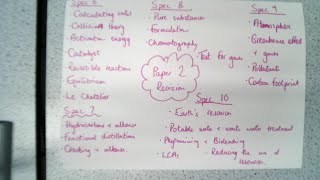 Spec 6
- Calculating rates
- Collision theory
- Activation energy
- Catalyst
- Reversible reactions
- Equilibrium
- Le Chatelier
Spec 7
- Hydrocarbons + alkanes
- Fractional distillation
- Cracking + alkenes
Spec 8
- Pure substances
- Formulation
- Chromatography
- Test for gases
Paper 2
Revision
Spec 9
- Atmosphere
- Greenhouse effect
+ gases
- Pollutant
- Carbon footprint
Spec 10
- Earth's resources
- Potable water + waste water treatment
- Phytomining + Bioleaching
- LCAs
- Reducing the use of
resources